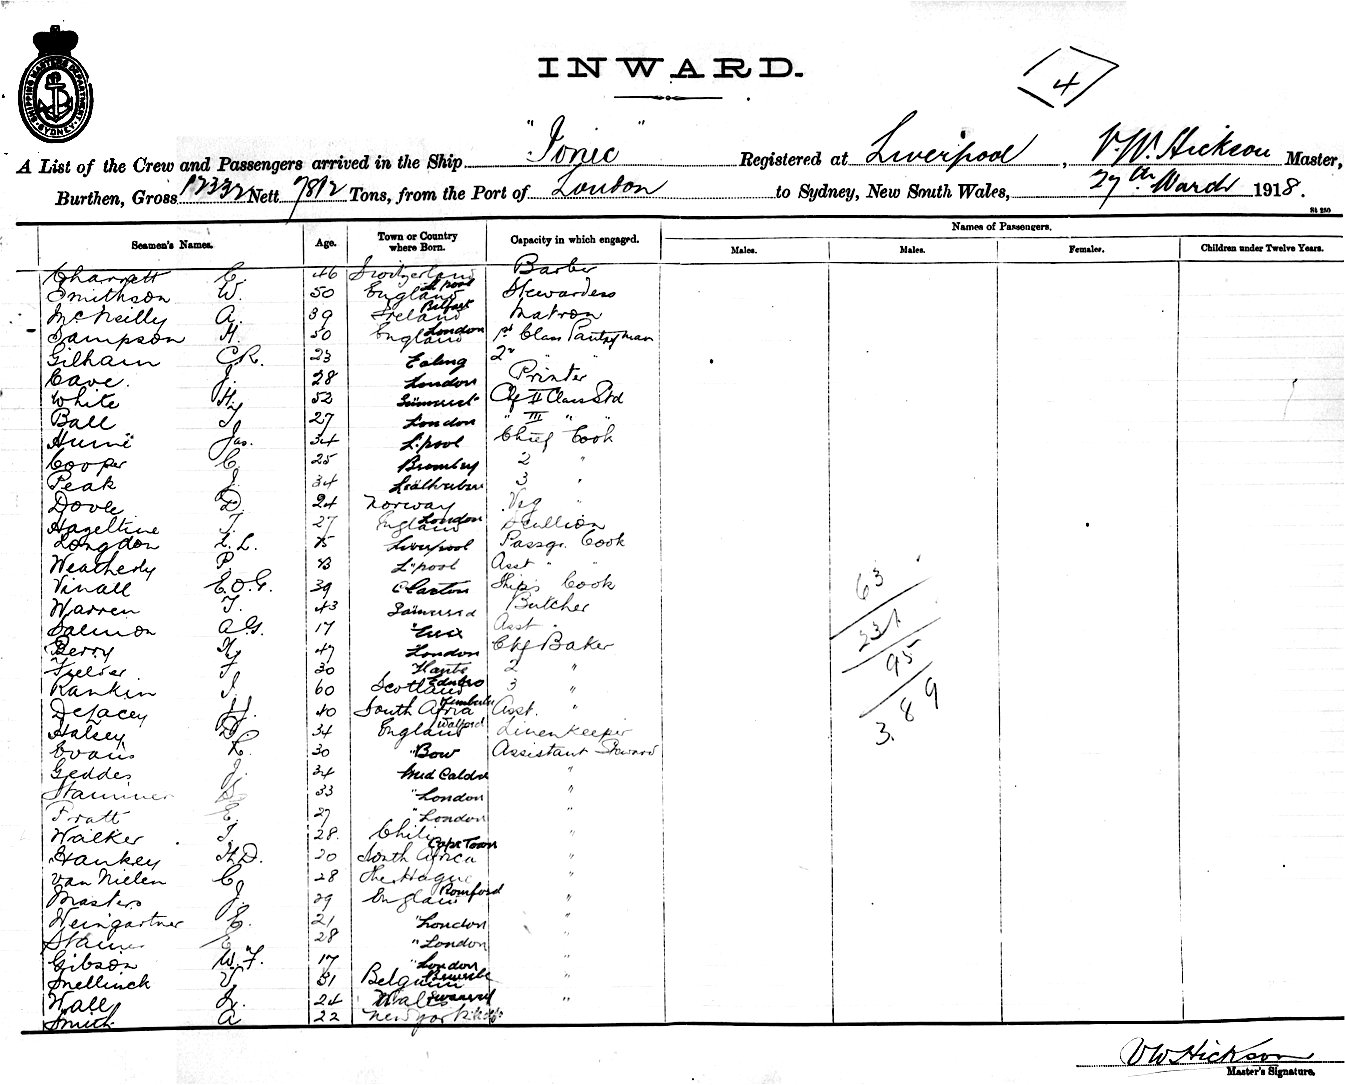 SHIPPING MASTER'S DEPARTMENT SYDNEY
INWARD.
4
A List of the Crew and Passengers arrived in the Ship "Ionic" Registered at Liverpool, V. W. Hickson Master,
Burthen, Gross 12332 Nett 7812 Tons, from the Port of London to Sydney, New South Wales, 27th March 1918.
Seamen's Names. Age. Town or Country where Born. Capacity in which engaged. Names of Passengers.
Males. Males. Females. Children under Twelve Years.
Charrett C. 46 Switzerland Barber
Smithson W. 50 England L'pool Stewardess
McNeilly A. 39 Ireland Belfast Matron
Sampson H. 50 England London 1st Class Pantryman
Gilham C.R. 23 Ealing 2nd " "
Cave. J. 28 London Printer
White Hy 52 Chf II Class Std
Ball T. 27 London " III " "
Hume Jas. 34 L'pool Chief Cook
Cooper C. 25 Bromley 2 "
Peak J. 34 3 "
Dove D. 24 Norway Veg "
Hazeltine T. 27 England London Scullion
Longdon L.L. Liverpool Passgr. Cook
Weatherly P. L'pool Asst " "
Vinall E.O.G. 39 Ship's Cook
Warren T. 43 Butcher
Salmon A.G. 17 Asst.
Berry Hy 47 London Chf Baker
Fielder F. 30 Hants 2 "
Rankin J. 60 Scotland Edinbro 3 "
DeLacey J. 40 South Africa Kimberley Asst. "
Halsey D. 34 England Watford Linenkeeper
Evans L. 30 "Bow Assistant Steward
Geddes J. 34 Mid Calder "
33 "London "
Pratt E. 27 "London "
Walker T. 28. Chili "
Hankey H.D. 20 South Africa Cape Town "
Van Nielen C. 28 The Hague "
Masters J. 29 England Romford "
Weingartner E. 21 "London "
Staines E. 28 "London "
Gibson W.F. 17 "London "
Snellinck V. 31 Belgium Brussels "
Wall Jr. 24 Wales Swansea "
Smith A 22 New York
63
231
95
3.89
VW Hickson
Master's Signature.